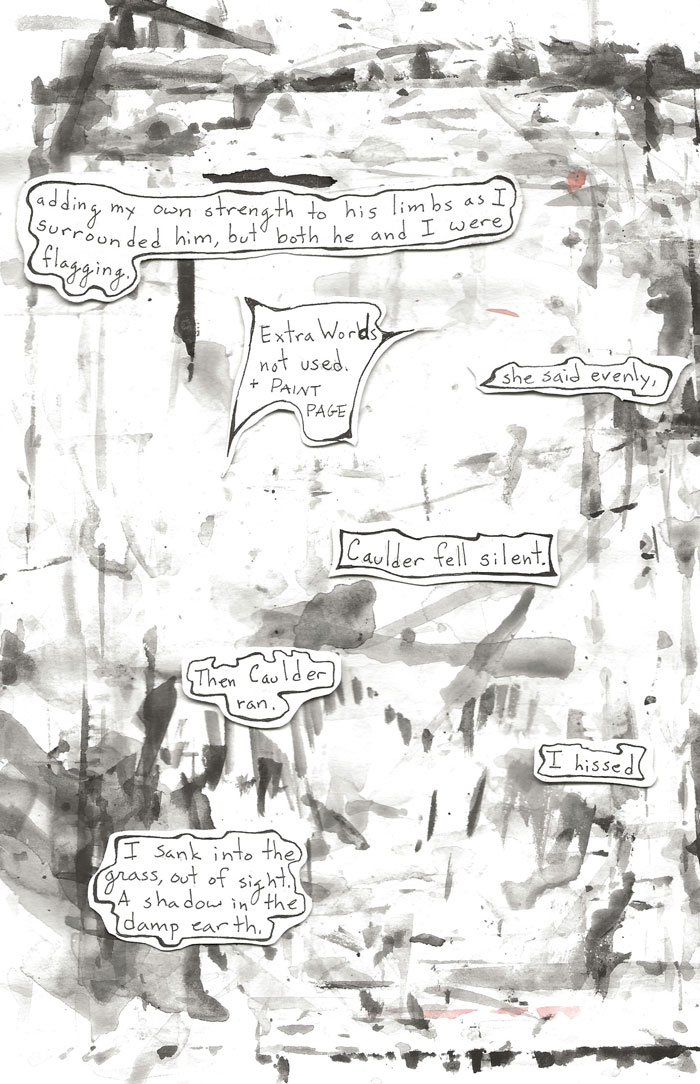 adding my own strength to his limbs as I
surrounded him, but both he and I were
flagging.
Extra Words
not used.
+ PAINT
PAGE
she said evenly,
Caulder fell silent.
Then Caulder
ran.
I hissed
I sank into the
grass, out of sight.
A shadow in the
damp earth.